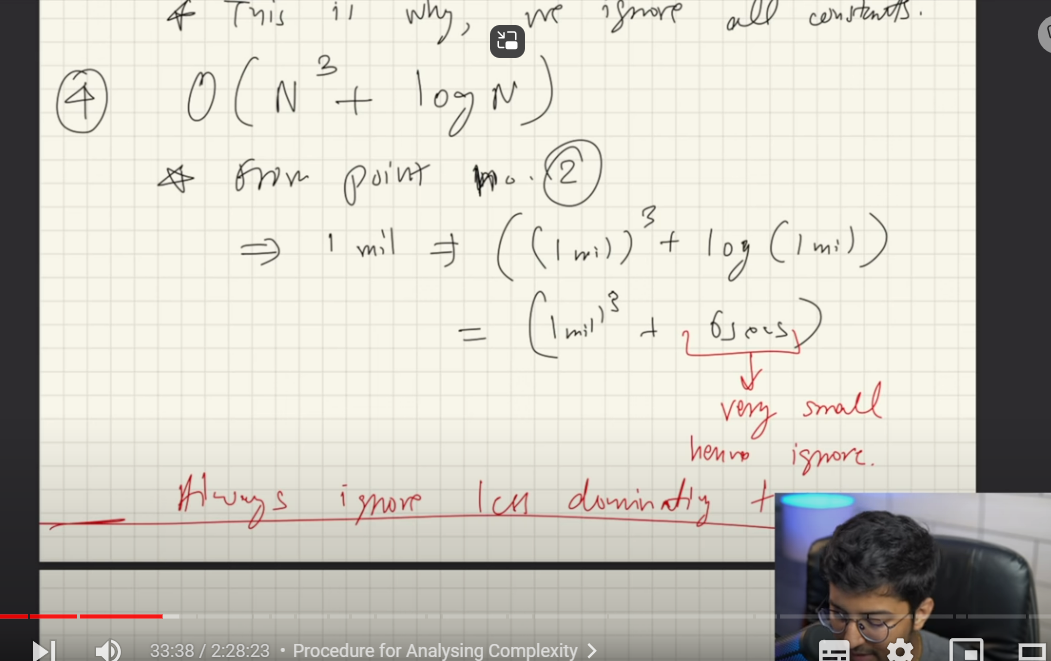 * This is why, we ignore all constants.
4 O(N³ + log N)
* from point no. 2
⇒ 1 mil ⇒ ((1 mil)³ + log (1 mil))
= (1 mil)³ + 6 secs)
very small
hence ignore.
Always ignore less dominating
33:38 / 2:28:23 • Procedure for Analysing Complexity >